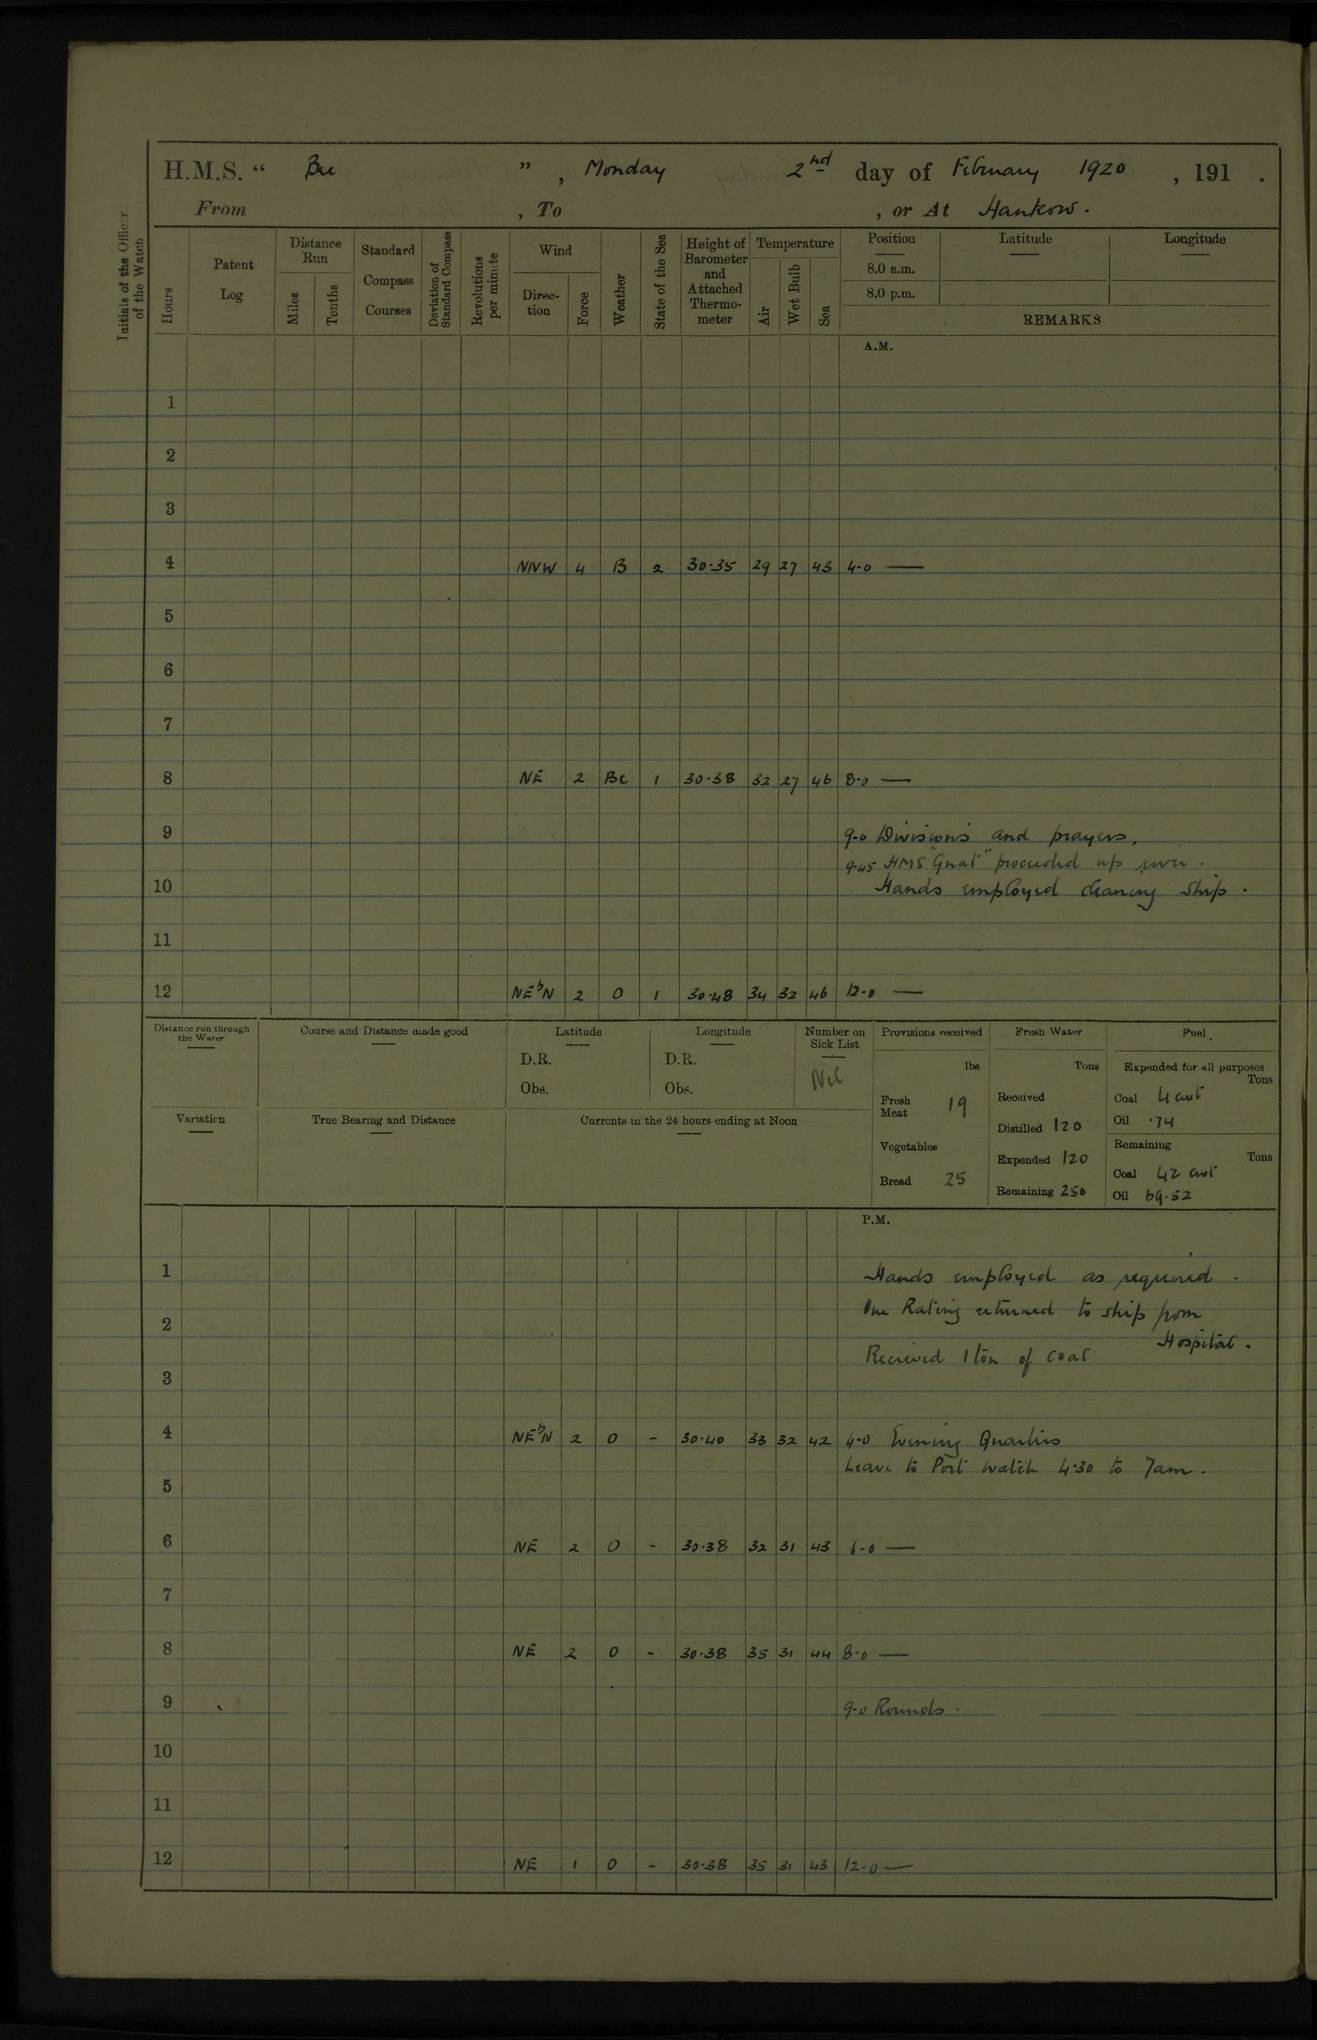 H.M.S. “ Bee ” , Monday 2nd day of February 1920 , 191 .
From , To , or At Hankow.
Initials of the Officer of the Watch
Hours
Patent Log
Distance Run
Miles
Tenths
Standard Compass Courses
Deviation of Standard Compass
Revolutions per minute
Wind
Direc-tion
Force
Weather
State of the Sea
Height of Barometer and Attached Thermo-meter
Temperature
Air
Wet Bulb
Sea
Position
8.0 a.m.
8.0 p.m.
Latitude
Longitude
REMARKS
A.M.
1
2
3
4 NNW 4 B 2 30.35 29 27 43 4.0 —
5
6
7
8 NE 2 Bc 1 30.38 32 27 46 8.0 —
9 9.0 Divisions and prayers.
9.45 HMS "Gnat" proceeded up river.
10 Hands employed cleaning ship.
11
12 NEbN 2 O 1 30.48 34 32 46 12.0 —
Distance run through the Water
Course and Distance made good
Latitude
D.R.
Obs.
Longitude
D.R.
Obs.
Number on Sick List
Nil
Provisions received
lbs
Fresh Meat 19
Vegetables
Bread 25
Fresh Water
Tons
Received
Distilled 120
Expended 120
Remaining 250
Fuel
Expended for all purposes
Tons
Coal 4 cwt
Oil .74
Remaining
Tons
Coal 42 cwt
Oil 69.52
Variation
True Bearing and Distance
Currents in the 24 hours ending at Noon
P.M.
1 Hands employed as required.
One Rating returned to ship from
2 Hospital.
Recieved 1 ton of coal
3
4 NEbN 2 O - 30.40 33 32 42 4.0 Evening Quarters
Leave to Port watch 4.30 to 7am.
5
6 NE 2 O - 30.38 32 31 43 6.0 —
7
8 NE 2 O - 30.38 35 31 44 8.0 —
9 9.0 Rounds.
10
11
12 NE 1 O - 30.38 35 31 43 12.0 —